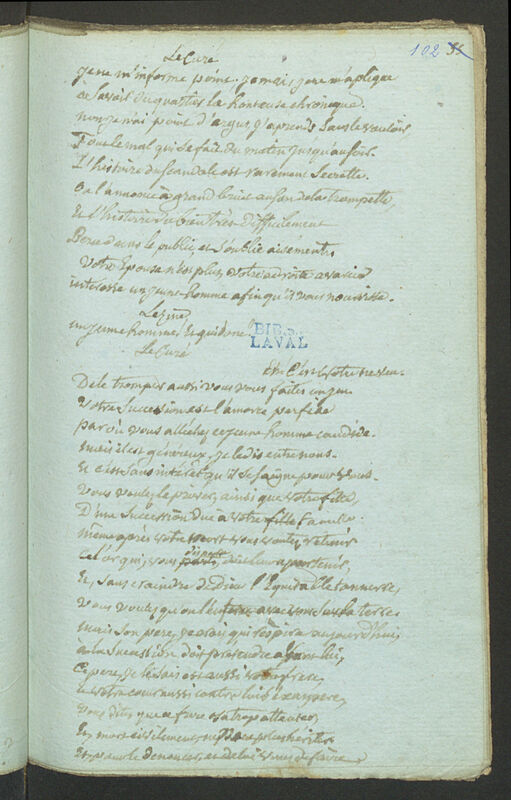 102
Le Curé
je ne m'informe point. jamais je ne m'aplique
de savoir du quartier la honteuse chronique.
non je n'ai point d'argus, j'aprends sans le vouloir
Tout le mal qui se fait du matin jusqu'au soir.
L'histoire du scandale est rarement secrette.
on l'annonce à grand bruit au son de la trompette,
et l'histoire du bien très difficilement
Perce dans le public et s'oublie aisément.
Votre Epouse n'est plus, votre adroite avarice
intéresse un jeune homme afin qu'il vous nourrisse.
un jeune homme! Et qui donc
BIB.
LAVAL
Le Curé
Eh! C'est votre neveu.
De le tromper aussi vous vous faites un jeu
Votre succession est l'amorce perfide
par où vous alléchez ce jeune homme candide.
mais il est généreux, je le dis entre nous.
et c'est sans intérêt qu'il se saigne pour vous.
Vous voulez le priver, ainsi que votre fille,
D'une succession due à votre famille.
même après votre mort vous voulez retenir
cet or qui, vous dispute, doit leur apartenir,
Et, sans craindre de Dieu l'Equitable tonnerre,
Vous voulez qu'on l'enferme avec vous sous la terre.
mais son pere, je crois, qui respire aujourd'hui,
à la succession doit prétendre avant lui,
Ce pere, je le sais est aussi votre frere,
et votre cour aussi contre lui s'exaspere,
Vous dites que ce frere
Et, mort civilement, ne
Et pour le dénoncer, et de lui vous defaire